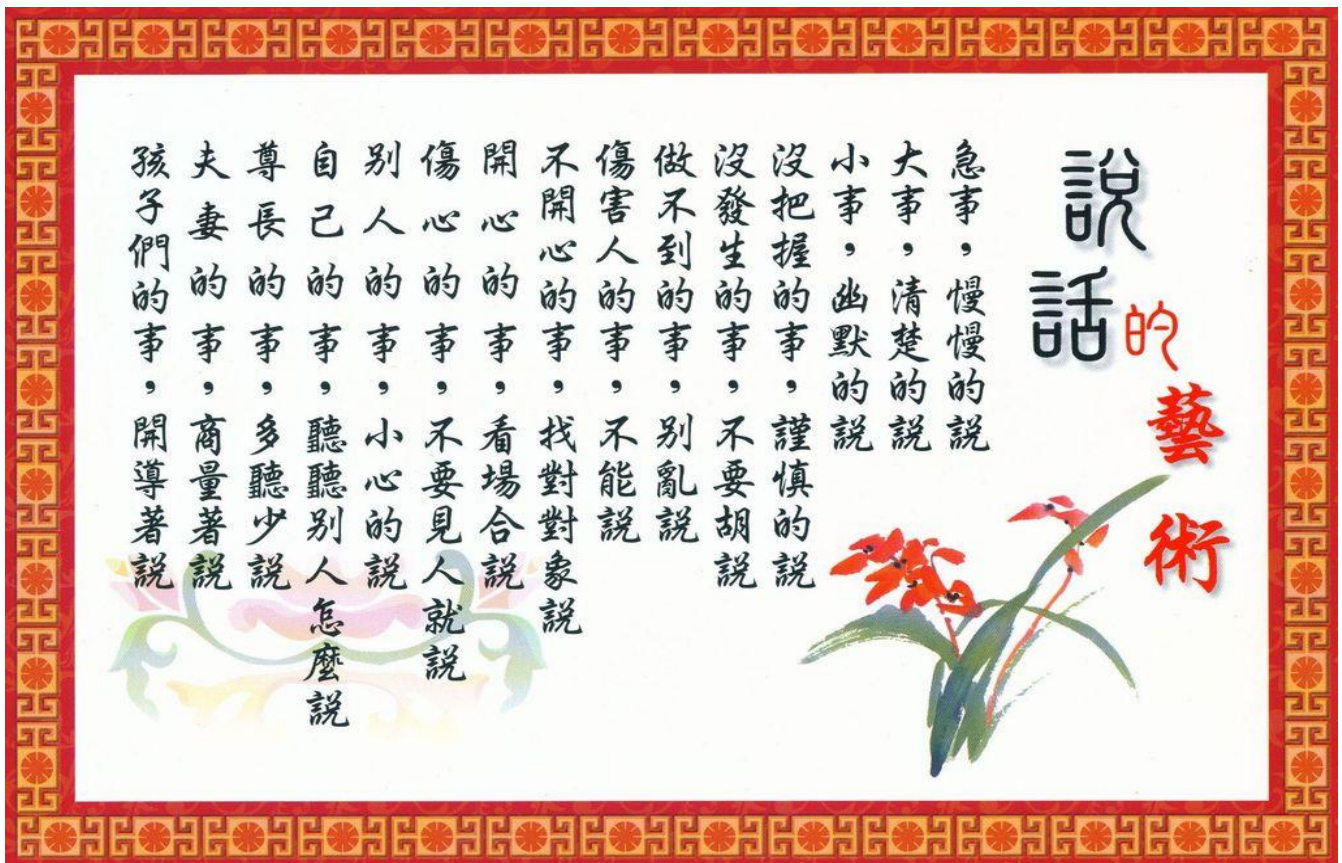 說話的藝術
急事，慢慢的說
大事，清楚的說
小事，幽默的說
沒把握的事，謹慎的說
沒發生的事，不要胡說
做不到的事，別亂說
傷害人的事，不能說
不開心的事，找對對象說
開心的事，看場合說
傷心的事，不要見人就說
別人的事，小心的說
自己的事，聽聽別人怎麼說
尊長的事，多聽少說
夫妻的事，商量著說
孩子們的事，開導著說